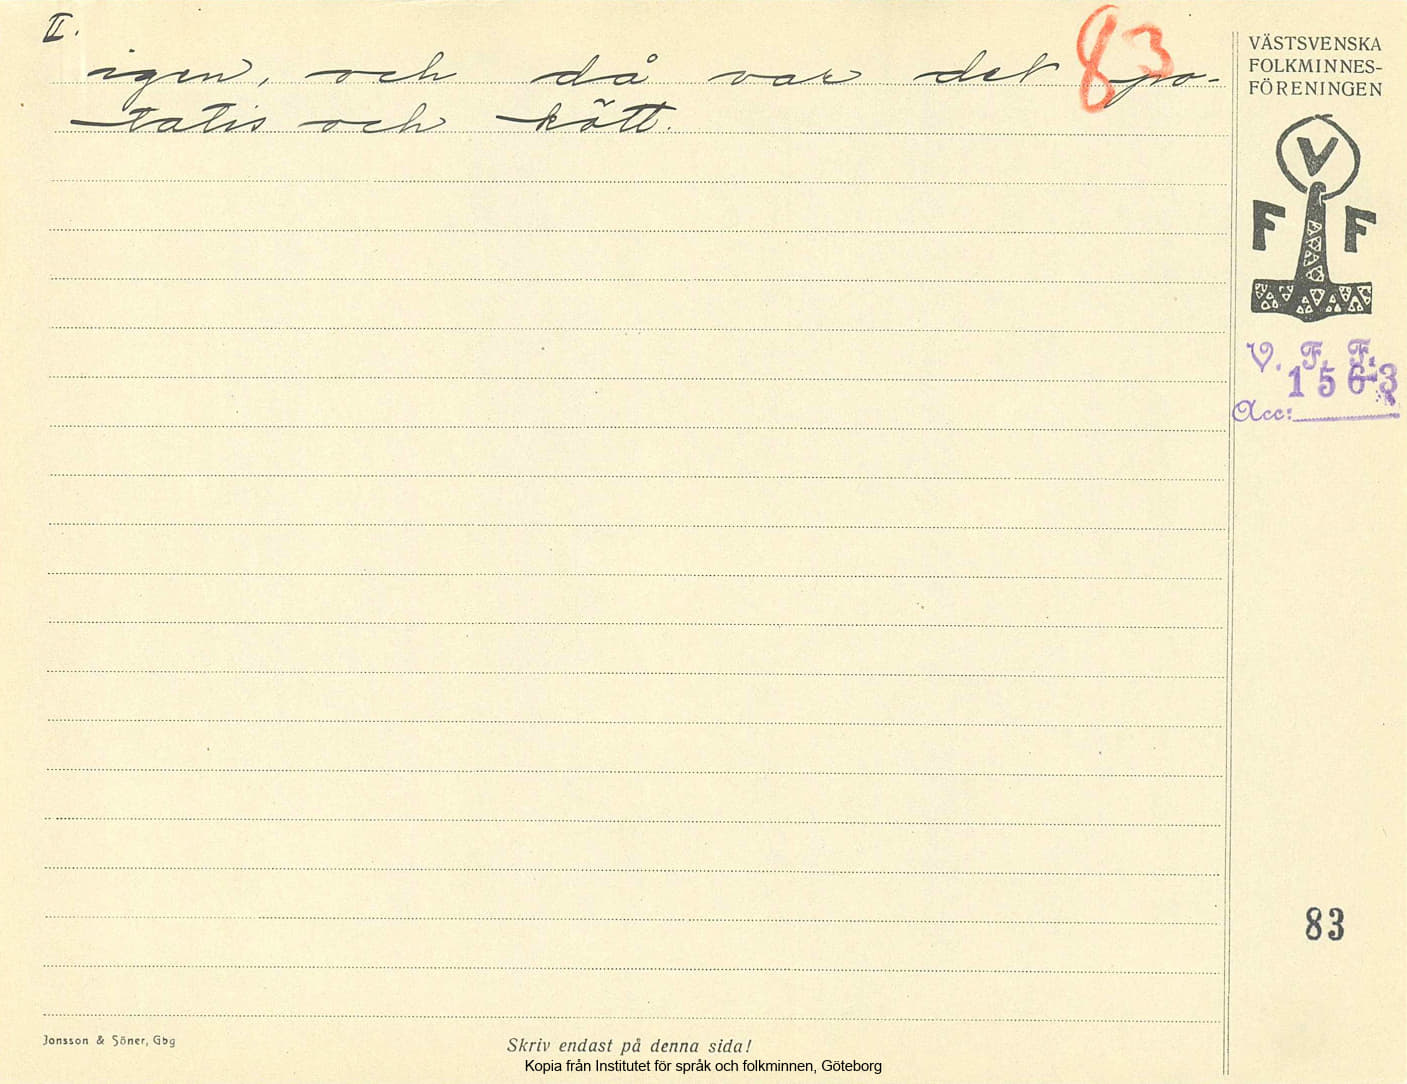 II.
83
igen, och då var det po-
tatis och kött.
VÄSTSVENSKA
FOLKMINNES-
FÖRENINGEN
V
F F
V. F. F.
1563
Acc:
83
Jonsson & Söner, Gbg
Skriv endast på denna sida!
Kopia från Institutet för språk och folkminnen, Göteborg